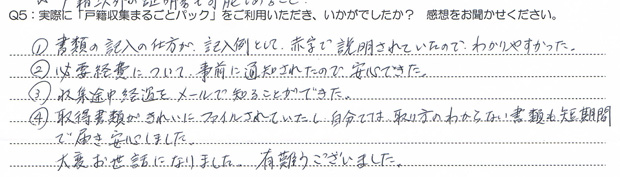 Q5：実際に「戸籍収集まるごとパック」をご利用いただき、いかがでしたか？ 感想をお聞かせください。
① 書類の記入の仕方が、記入例として、赤字で説明されていたので、わかりやすかった。
② 必要経費について、事前に通知されたので安心できた。
③ 収集途中経過を、メールで知ることができた。
④ 取得書類がきれいにファイルされていたし、自分では、取り方のわからない書類も短期間
で届き安心しました。
大変お世話になりました。有難うございました。